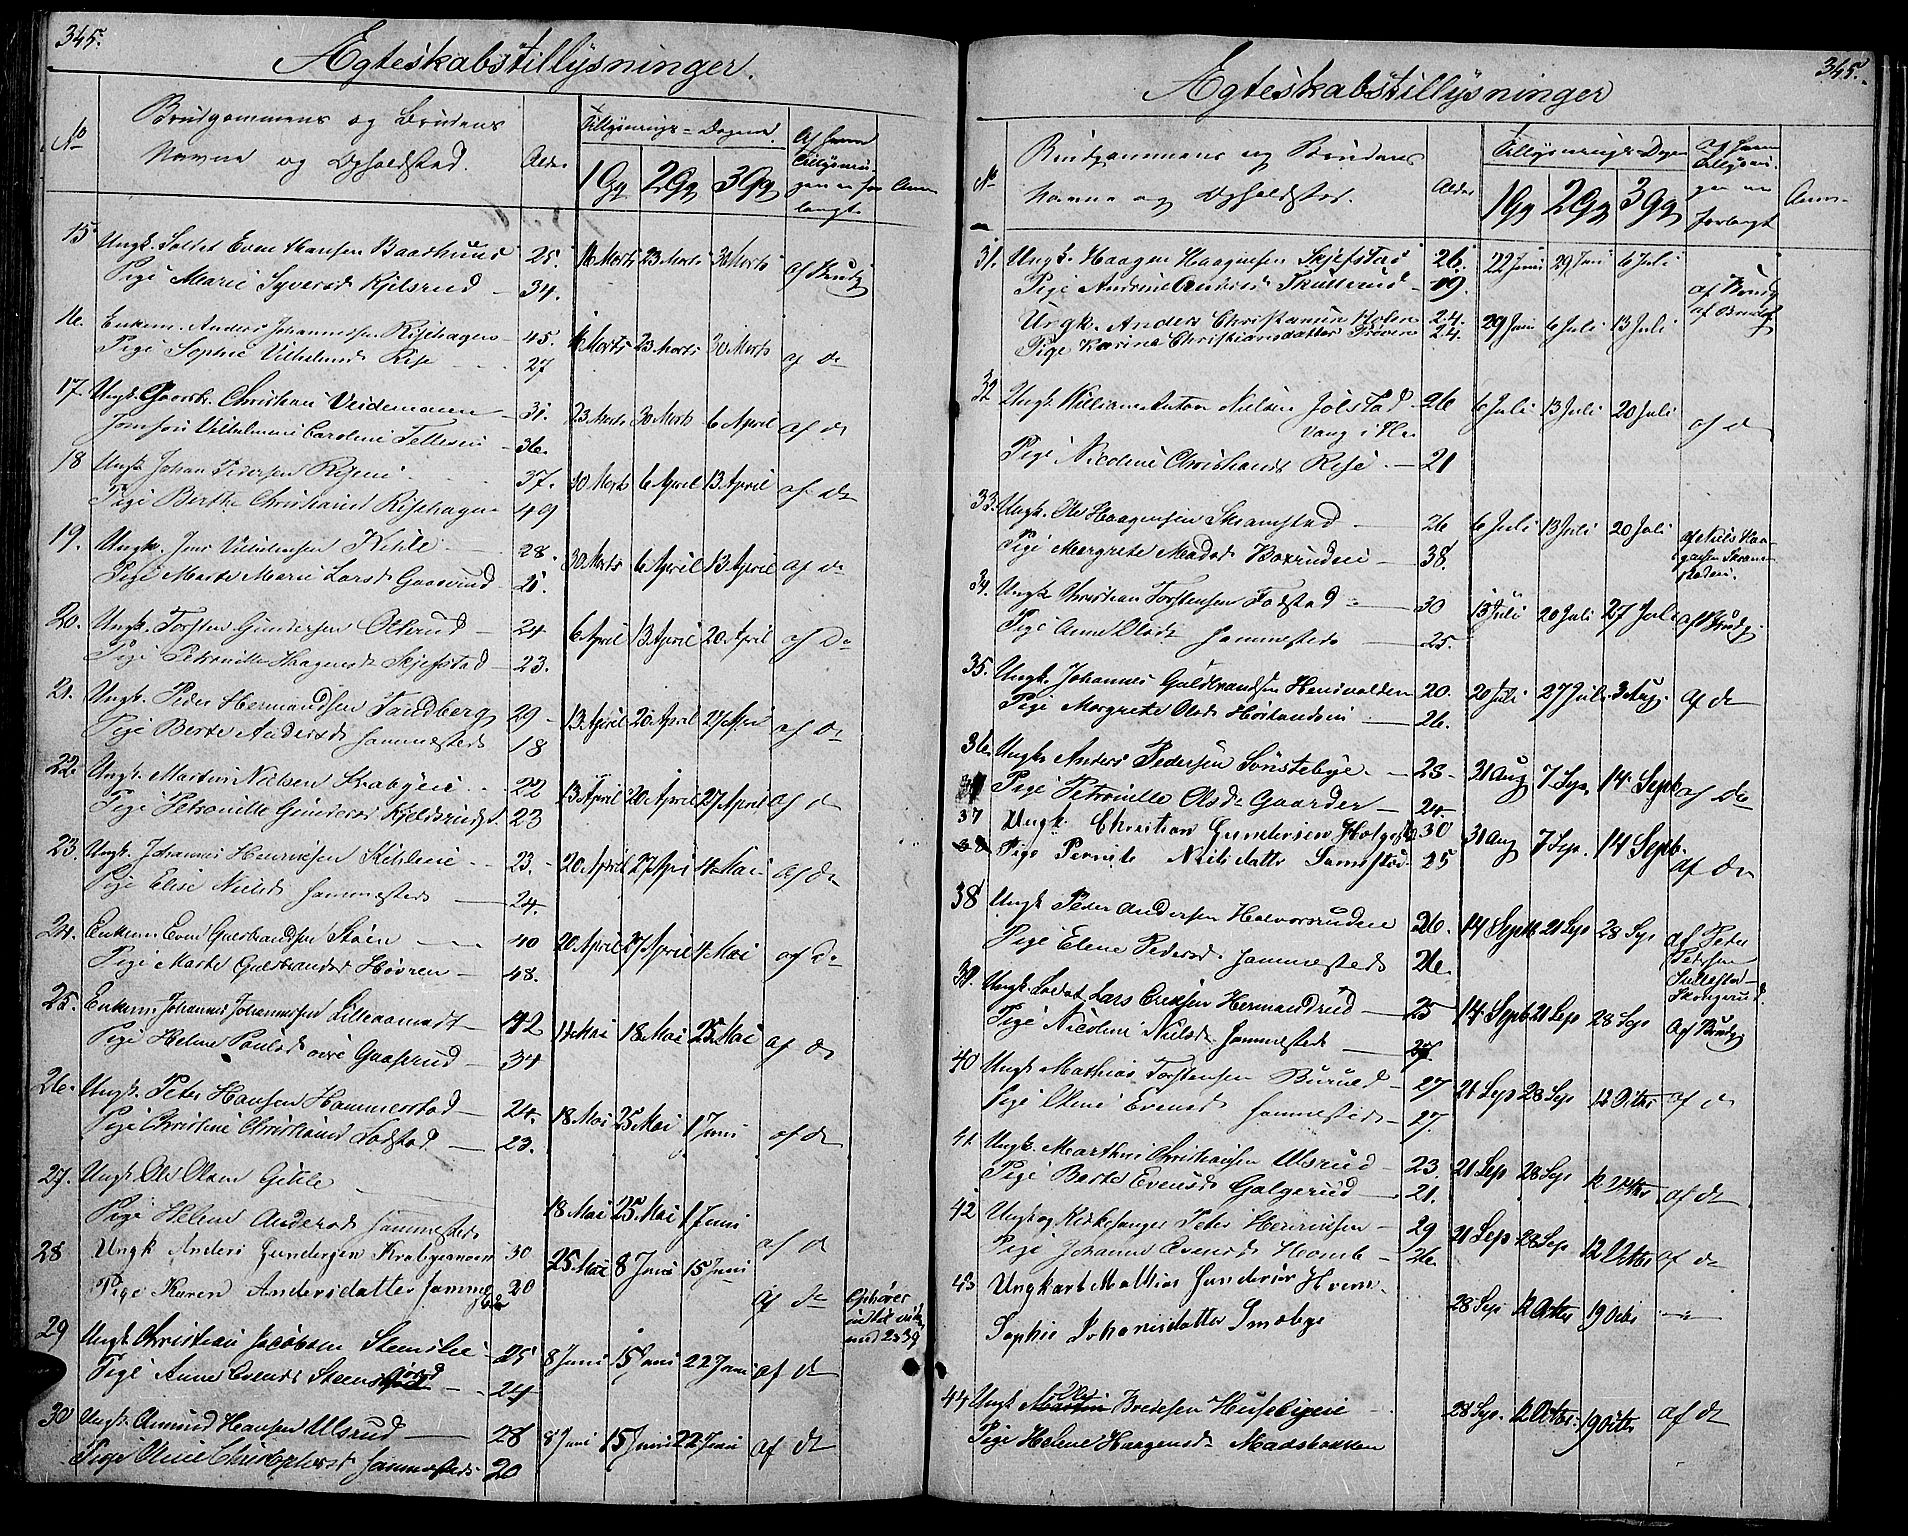 345.
Ægteskabstillysninger.
No
Brudgommens og Brudens
Navne og Opholdsted.
Alder
Tillysnings-Dagene.
1 Gg 2 Gg 3 Gg
Af hvem
Tillysnin
gen er for
langt
Anm
15 Ungk. Soldat Even Hansen Baashuus 25. 16 Marts 23 Marts 30 Marts af Brudg
Pige Marie Syversd Kjelsrud 34.
16. Enkem. Anders Johannessen Risehagen 45. 16 Marts 23 Marts 30 Marts af do
Pige Sophie Vilhelmsd Rise 27
17. Ungk. Christian Veidemann 31. 23 Marts 30 Marts 6 April af do
Jomfru Vilhelmine Caroline Tellesen 36.
18 Ungk Johan Pedersen 37. 30 Marts 6 April 13 April af do
Pige Berthe Christiansd Risehagen 49
19. Ungk. Jens Vilhelmsen Kihle 28. 30 Marts 6 April 13 April af do
Pige Marte Marie Larsd Gaasrud 25.
20. Ungk. Torsten Gundersen Olsrud 24 6 April 13 April 20 April af Do
Pige Petronille Haagensd Skjefstad 23.
21. Ungk. Peder Hermandsen Sandberg 29 13 April 20 April 27 April af do
Pige Berte Andersd sammesteds 18
22. Ungk. Martin Nielsen Krabyeie 22 13 April 20 April 27 April af do
Pige Petronille Gundersd 23
23. Ungk. Johannes Henriksen Kihleie 23. 20 April 27 Apri 4 Mai af do
Pige Elise Nielsd sammesteds 24.
24. Enkem Even Gulbrandsen Stöen 40 20 April 27 April 4 Mai af do
Pige Marte Guldbrandsd Hövren 48.
25. Enkem. Johannes Johannessen 42 11 Mai 18 Mai 25 Mai af do
Pige Helene Paulsd Gaasrud 34
26. Ungk. Peter Hansen Hammerstad 24. 18 Mai 25 Mai 1 Juni af do
Pige Christine Christiansd Fodstad 23.
27. Ungk Ole Olsen Gihle 18 Mai 25 Mai 1 Juni af do
Pige Helene Andersd sammesteds
28 Ungk Anders Gundersen 30 25 Mai 8 Juni 15 Juni af do
Pige Karen Andersdatter samme 20 Ophörer
29 Ungk. Christian Jacobsen Steinslie 25 8 Juni 15 Juni 22 Juni af do
Pige Anne Evensd 24
30 Ungk. Amund Hansen Ulsrud 28 8 Juni 15 Juni 22 Juni af do
Pige Oline Christophersd sammesteds 20
345.
Ægteskabstillysninger
No
Brudgommens og Brudens
Navne og Opholdsted.
Alder
Tillysnings-Dagen
1 Gg 2 Gg 3 Gg
Af hvem
Tillysnin-
gen er
forlangt
Anm-
31. Ungk. Haagen Haagensen Skjefstad 26. 22 Juni 29 Juni 6 Juli af Brudg
Pige Andrine Andersd Skullerud 19.
Ungk. Anders Christiansen Holen 24. 29 Juni 6 Juli 13 Juli
Pige Karine Christiansdatter Pröven 24.
32 Ungk William Anton Nielsen Jölstad 26 6 Juli 13 Juli 20 Juli af do
Vang i He
Pige Nicoline Christiansd Rise 21
33. Ungk. Ole Haagensen Skramstad 26 6 Juli 13 Juli 20 Juli af Niels Haa-
Pige Margrete Madsd 38.
34. Ungk Christian Torstensen Fodstad 30 13 Juli 20 Juli 27 Juli af Brudg.
Pige Anne Olsd sammesteds 25.
35. Ungk. Johannes Guldbrandsen 20. 20 Juli 27 Juli 3 Aug. af do
Pige Margrete Olsd 26.
36. Ungk. Anders Pedersen Sönstebye 23 31 Aug 7 Sep. 14. Sept af Do
Pige Petronille Olsd Gaarder 24.
37 Ungk. Christian Gundersen 30 31 Aug 7 Sep. 14 Sept. af do
38 Pige Pernile Nielsdatter 25
38 Ungk Peder Andersen Halvorsrudeie 26. 14 Sept 21 Sep 28 Sep af Peter
Pige Elene Pedersd sammesteds 26.
39. Ungk. Soldat Lars Eriksen Hermandrud 25 14 Sept 21 Sep 28 Sep Af Brudg
Pige Nicoline Nielsd sammesteds
40 Ungk Mathias Torstensen Burud 27 21 Sep 28 Sep 12 Octbr af do
Pige Oline Evensd sammesteds 27
41. Ungk. Marthin Christiansen Ulsrud 23. 21 Sep 28 Sep 12 Octbr af do
Pige Berte Evensd Galgerud 21.
42 Ungk og Kirkesanger Peter Henriksen 29 21 Sep 28 Sep 12 Octbr af do
Pige Johanne Evensd Homb 26.
43 Ungkarl Mathias Gundersen 28 Sep 12 Octbr 19 Octbr
Sophie Johanisdatter Smebye
44 Ungk Ole Bredesen Husebyeie 28 Sep. 12 Octbr 19 Octbr af do
Pige Helene Haagensd Madsbakken